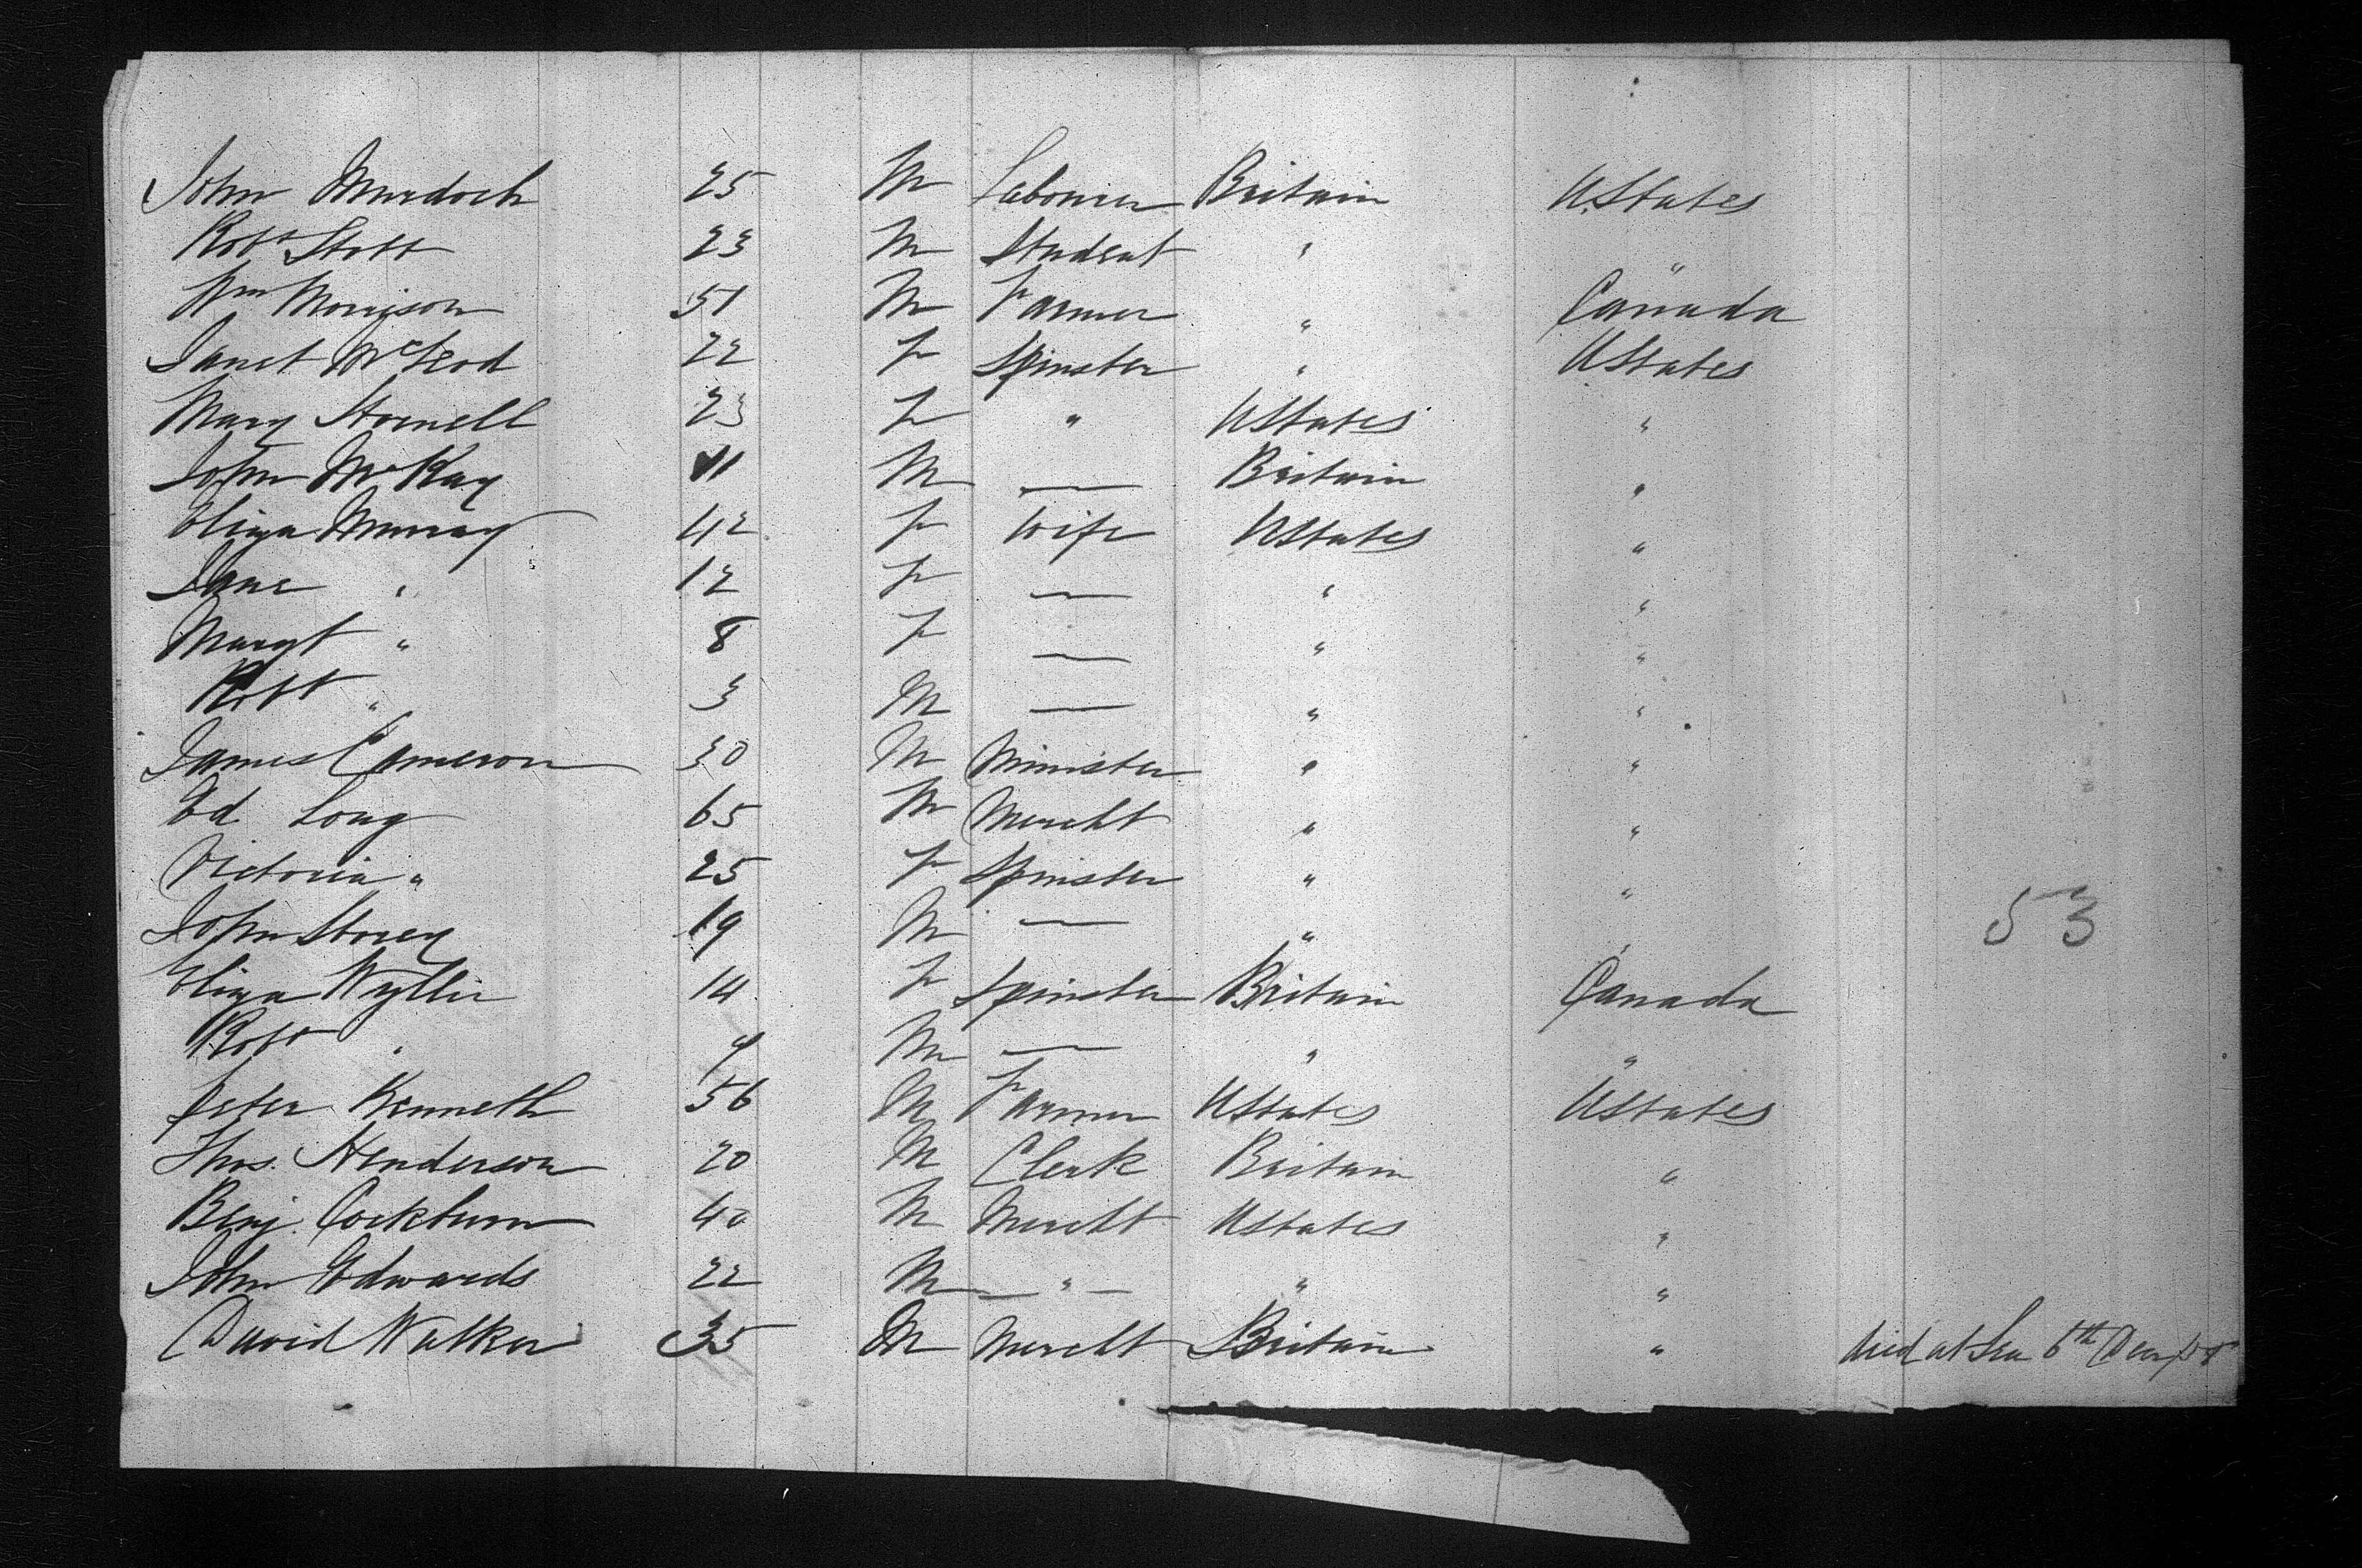 John Murdoch 25 M Labourer Britain UStates
Robt Stott 23 M Student " "
Wm Morrison 51 M Farmer " Canada
Janet McLeod 22 F Spinster " UStates
Mary Stornell 23 F " UStates "
John McKay 11 M — Britain "
Eliza Murray 42 F Wife UStates "
Jane " 12 F — " "
Margt " 8 F — " "
Robt " 3 M — " "
James Cameron 30 M Minister " "
Ed. Long 65 M Mercht " "
Victoria " 25 F Spinster " "
John Storey 19 M — " "
53
Eliza Wyllie 14 F Spinster Britain Canada
Robt " 9 M — " "
Peter Kenneth 56 M Farmer UStates UStates
Thos. Henderson 20 M Clerk Britain "
Benj. Cockburn 40 M Mercht UStates "
John Edwards 22 M — " — " "
David Walker 35 M Mercht Britain " Died at Sea 6th Decr